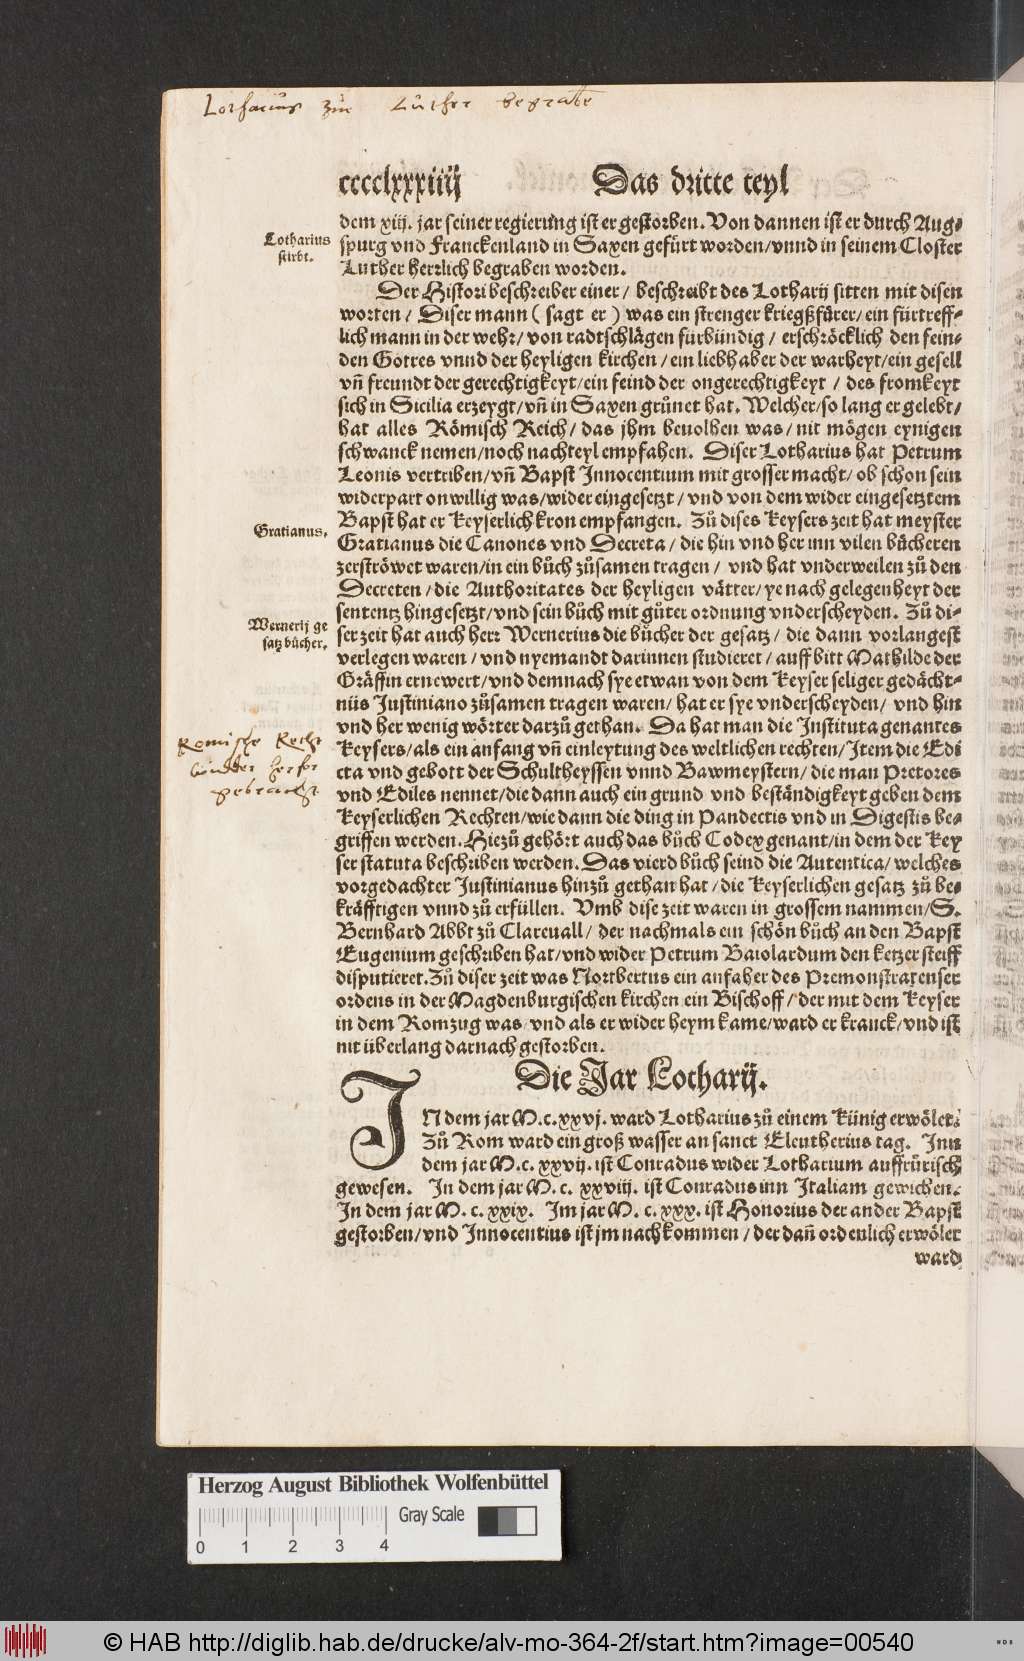 Lotharius zu Luther begrabe
cccclxxxiiij Das dritte teyl
dem xiij. jar seiner regierung ist er gestorben. Von dannen ist er durch Aug⸗
Lotharius stirbt.
spurg vnd Franckenland in Saxen gefürt worden/vnnd in seinem Closter
Luther herrlich begraben worden.
Der Histori beschreiber einer/ beschreibt des Lotharij sitten mit disen
worten/ Diser mann (sagt er) was ein strenger kriegßfürer/ein fürtreff⸗
lich mann in der wehr/von radtschlägen fürbündig/ erschröcklich den fein⸗
den Gottes vnnd der heyligen kirchen/ein liebhaber der warheyt/ein gesell
vñ freundt der gerechtigkeyt/ein feind der ongerechtigkeyt/ des fromkeyt
sich in Sicilia erzeygt/vñ in Saxen grůnet hat. Welcher/so lang er gelebt/
hat alles Römisch Reich/ das jhm beuolhen was/nit mögen eynigen
schwanck nemen/noch nachteyl empfahen. Diser Lotharius hat Petrum
Leonis vertriben/vñ Bapst Innocentium mit grosser macht/ob schon sein
widerpart onwillig was/wider eingesetzt/vnd von dem wider eingesetztem
Bapst hat er Keyserlich kron empfangen. Zů dises Keysers zeit hat meyster
Gratianus.
Gratianus die Canones vnd Decreta/die hin vnd her inn vilen bücheren
zerströwet waren/in ein bůch zůsamen tragen/ vnd hat vnderweilen zů den
Decreten/die Authoritates der heyligen vätter/ye nach gelegenheyt der
sententz hingesetzt/vnd sein bůch mit gůter ordnung vnderscheyden. Zů di⸗
Wernerij ge
satz bücher.
ser zeit hat auch herr Wernerius die bücher der gesatz/die dann vorlangest
verlegen waren/vnd nyemandt darinnen studieret/auff bitt Mathilde der
Gräffin ernewert/vnd demnach sye etwan von dem Keyser seliger gedächt⸗
nüs Justiniano zůsamen tragen waren/hat er sye vnderscheyden/ vnd hin
vnd her wenig wörter darzů gethan. Da hat man die Instituta genantes
Romische Recht
herfor
gebracht
Keysers/als ein anfang vñ einleytung des weltlichen rechten/Item die Edi
cta vnd gebott der Schultheyssen vnnd Bawmeystern/die man Pretores
vnd Ediles nennet/die dann auch ein grund vnd beständigkeyt geben dem
Keyserlichen Rechten/wie dann die ding in Pandectis vnd in Digestis be⸗
griffen werden. Hiezů gehört auch das bůch Codex genant/in dem der Key
ser statuta beschriben werden. Das vierd bůch seind die Autentica/welches
vorgedachter Justinianus hinzů gethan hat/die Keyserlichen gesatz zů be⸗
kräfftigen vnnd zů erfüllen. Vmb dise zeit waren in grossem nammen/S.
Bernhard Abbt zů Clareuall/ der nachmals ein schön bůch an den Bapst
Eugenium geschriben hat/vnd wider Petrum Baiolardum den ketzer steiff
disputieret. Zů diser zeit was Nortbertus ein anfaher des Premonstratenser
ordens in der Magdenburgischen kirchen ein Bischoff/der mit dem Keyser
in dem Romzug was/vnd als er wider heym kame/ward er kranck/vnd ist
nit überlang darnach gestorben.
Die Jar Lotharij.
IN dem jar M.c.xxvj. ward Lotharius zů einem Künig erwölet.
Zů Rom ward ein groß wasser an sanct Eleutherius tag. Inn
dem jar M.c. xxvij. ist Conradus wider Lotharium auffrürisch
gewesen. In dem jar M. c. xxviij. ist Conradus inn Italiam gewichen.
In dem jar M. c. xxix. Im jar M. c. xxx. ist Honorius der ander Bapst
gestorben/vnd Innocentius ist jm nachkommen/der dañ ordenlich erwölet
ward
Herzog August Bibliothek Wolfenbüttel
Gray Scale
0 1 2 3 4
© HAB http://diglib.hab.de/drucke/alv-mo-364-2f/start.htm?image=00540